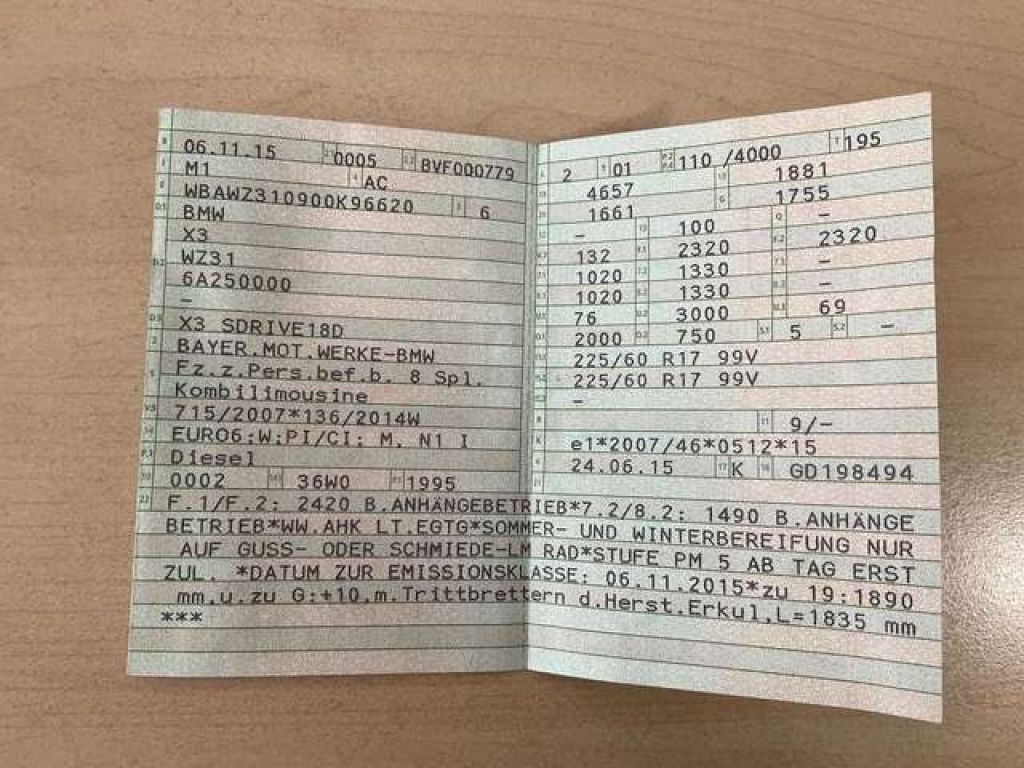 06.11.15 0005 BVF000779
M1 AC
WBAWZ310900K96620 6
BMW
X3
WZ31
6A250000
–
X3 SDRIVE18D
BAYER.MOT.WERKE-BMW
Fz.z.Pers.bef.b. 8 Spl.
Kombilimousine
715/2007*136/2014W
EURO6;W;PI/CI; M, N1 I
Diesel
0002 36W0 1995
2 01 110 /4000 195
4657 1881
1661 G 1755
– 100 –
132 2320 2320
1020 1330 –
1020 1330 –
76 3000 69
2000 750 5 –
225/60 R17 99V
225/60 R17 99V
–
9/–
e1*2007/46*0512*15
24.06.15 K GD198494
F.1/F.2: 2420 B.ANHÄNGEBETRIEB*7.2/8.2: 1490 B.ANHÄNGE
BETRIEB*WW.AHK LT.EGTG*SOMMER- UND WINTERBEREIFUNG NUR
AUF GUSS- ODER SCHMIEDE-LM RAD*STUFE PM 5 AB TAG ERST
ZUL. *DATUM ZUR EMISSIONSKLASSE: 06.11.2015*zu 19:1890
mm,u.zu G:+10,m.Trittbrettern d.Herst.Erkul,L=1835 mm
***